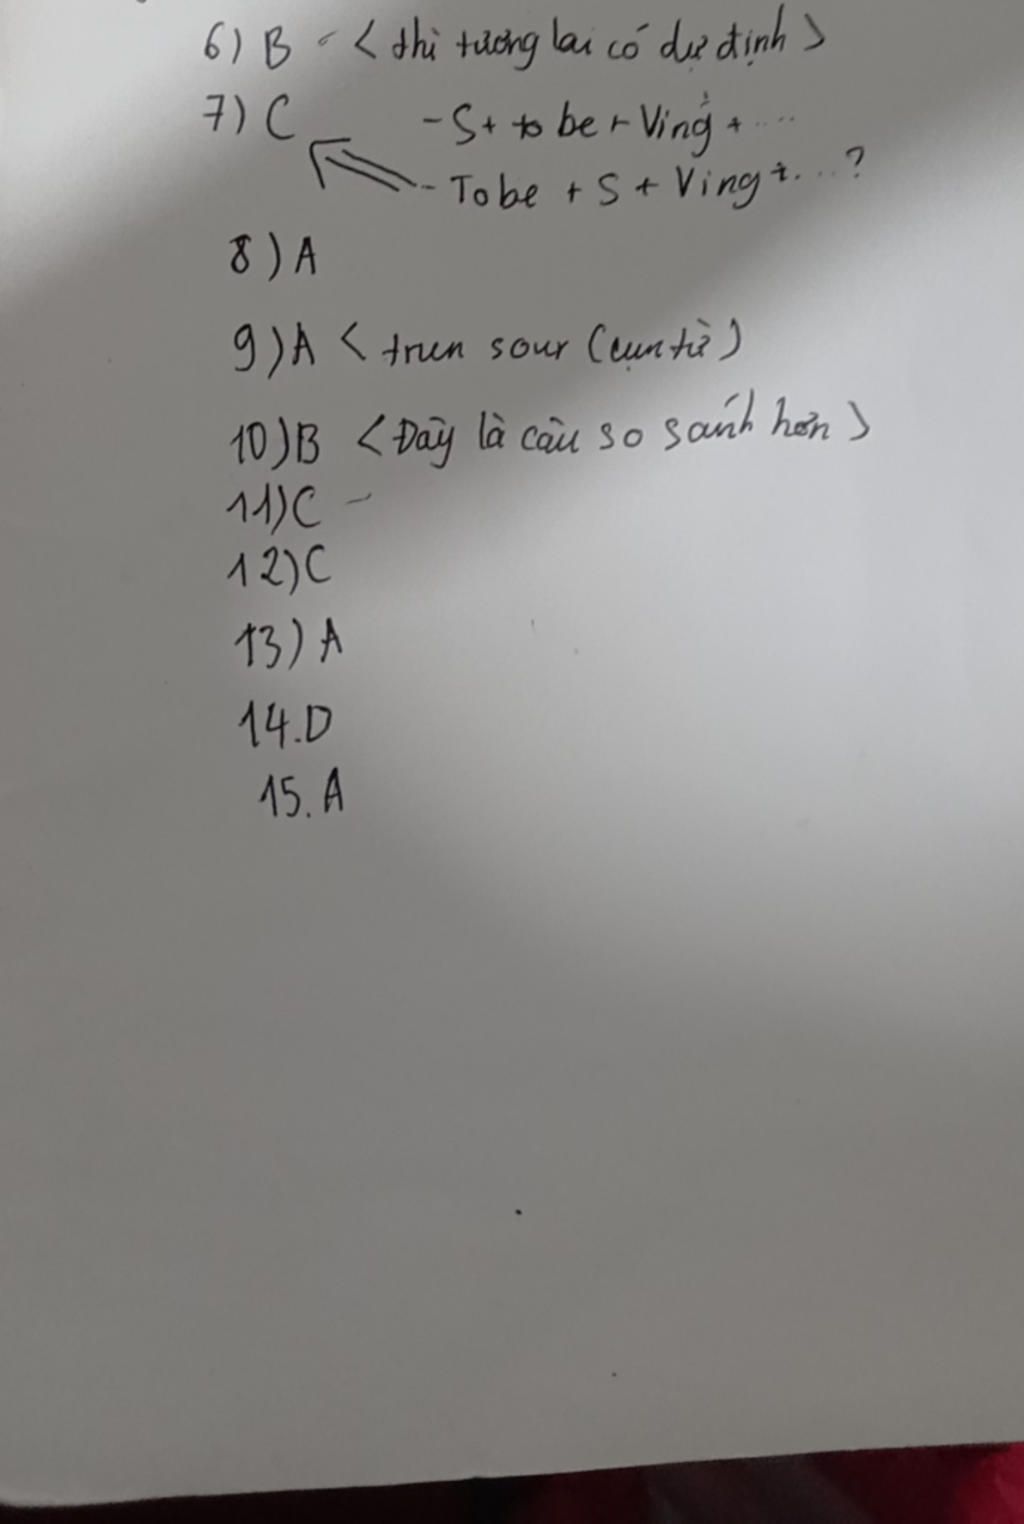 6) B - < thì tương lai có dự định >
7) C - S + to be + Ving + ....
- Tobe + S + Ving + ....?
8) A
9) A < trun sour (cụm từ)
10) B < Đây là câu so sánh hơn >
11) C -
12) C
13) A
14. D
15. A